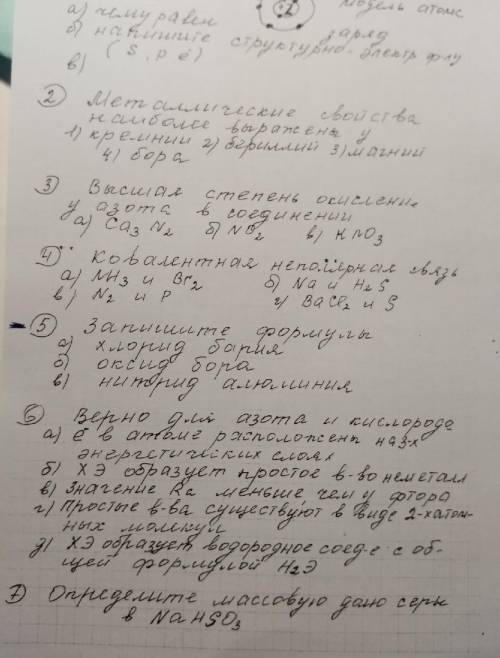 а) чему равен заряд
модель атома
б) напишите структурно-электр ф-лу
в) (S, p ē)
② Металлические свойства
наиболее выражены у
1) кремний 2) бериллий 3) магний
4) бора
③ Высшая степень окисления
у азота в соединении
а) Ca₃N₂ б) NO₂ в) KNO₃
④ Ковалентная неполярная связь
а) NH₃ и Br₂ б) Na и H₂S
в) N₂ и P г) BaCl₂ и S
⑤ Запишите формулы
а) хлорид бария
б) оксид бора
в) нитрид алюминия
⑥ Верно для азота и кислорода
а) ē в атоме расположены на 3-х
энергетических слоях
б) ХЭ образует простое в-во неметалл
в) Значение Ra меньше чем у фтора
г) Простые в-ва существуют в виде 2-хатом-
ных молекул
д) ХЭ образует водородное соед-е с об-
щей формулой H₂Э
7) Определите массовую долю серы
в NaHSO₃